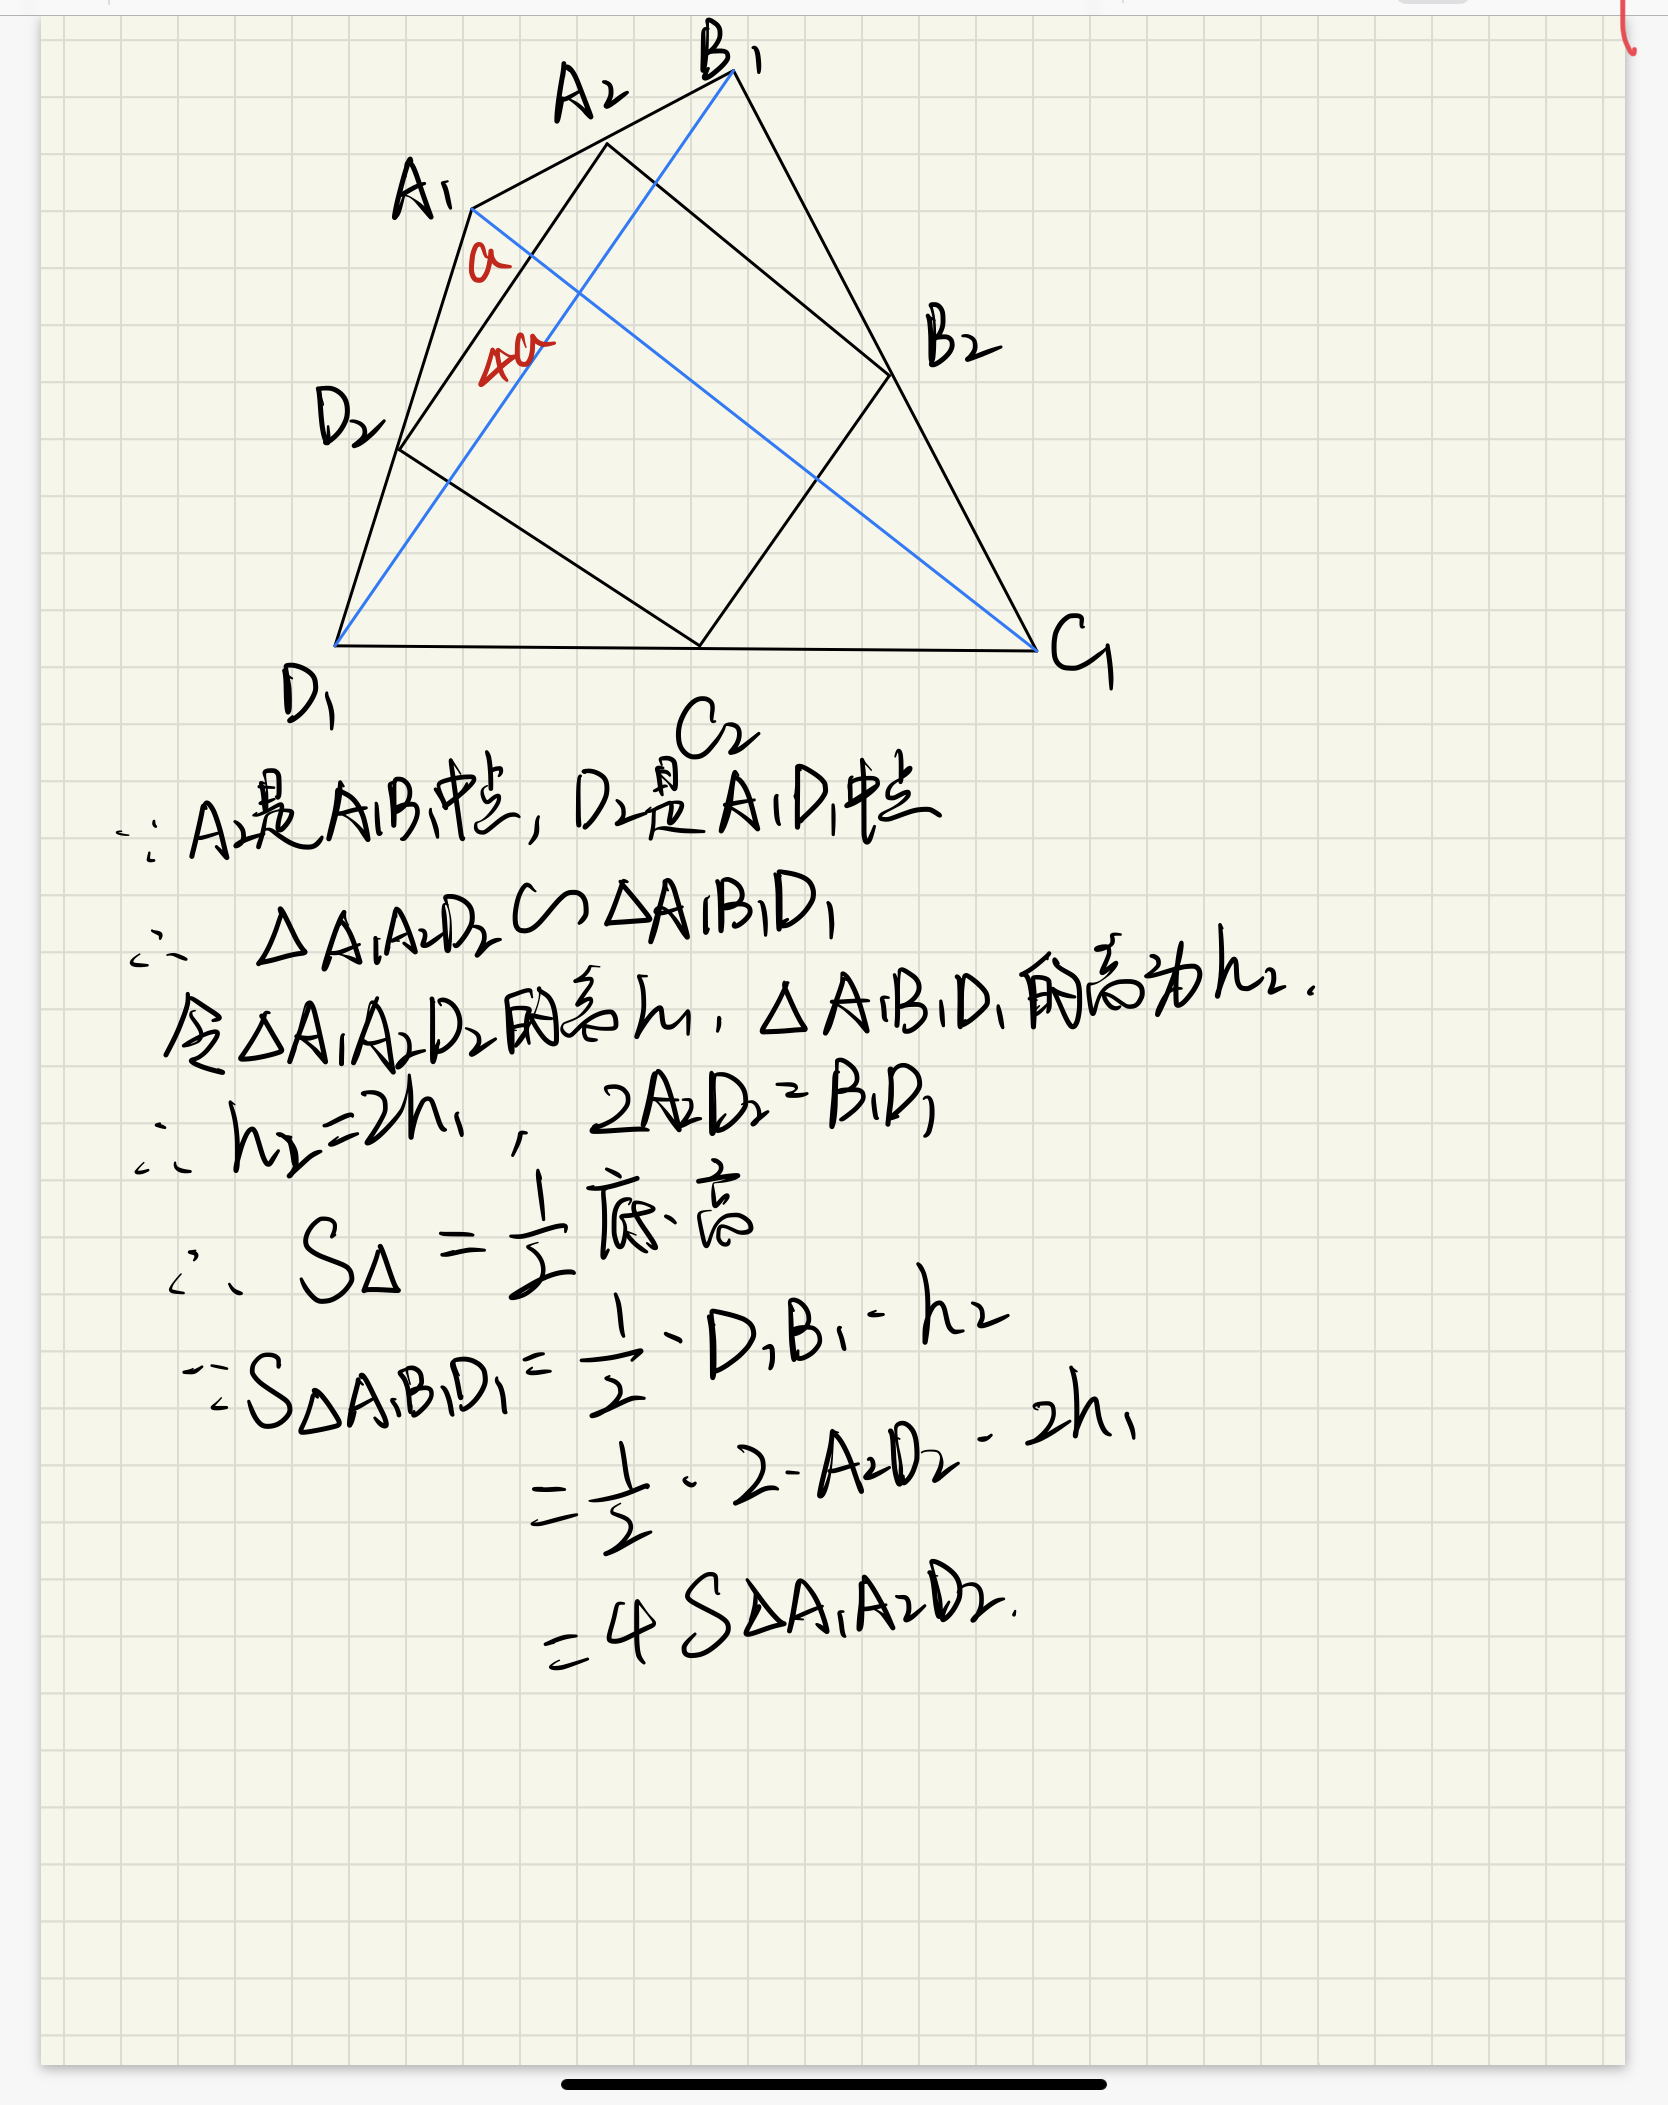 B₁
A₂
A₁
a
B₂
4a
D₂
C₁
D₁
C₂
∵ A₂是A₁B₁中点, D₂是A₁D₁中点
∴ △A₁A₂D₂ ∽ △A₁B₁D₁
令△A₁A₂D₂的高h₁, △A₁B₁D₁的高为h₂.
∴ h₂=2h₁, 2A₂D₂=B₁D₁
∴ S△ = 1/2 底·高
∵ S△A₁B₁D₁ = 1/2 · D₁B₁ · h₂
= 1/2 · 2 · A₂D₂ · 2h₁
= 4 S△A₁A₂D₂.